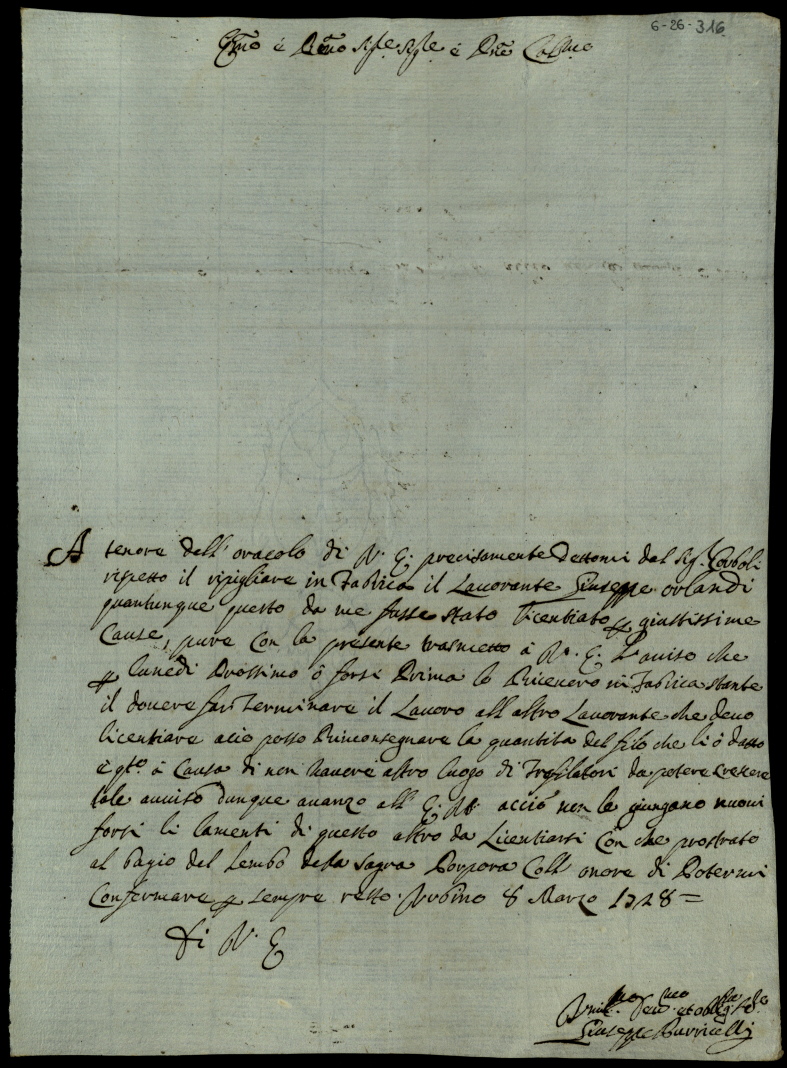 6-26-316
Em̃o é Rm̃o Sigre Sigre é Prõe Colmo
A tenore dell' oracolo di V. E. precisamente dettomi dal Sig. Corboli
rispetto il ripigliare in Fabrica il Lavorante Giuseppe Orlandi
quantunque questo da me fusse stato licentiato p giustissime
Cause, pure con la presente trasmetto à V. E. l'aviso che
p lunedi Prossimo ò forsi Prima lo Riceverò in Fabrica stante
il dovere far Terminare il Lavoro all altro Lavorante che devo
licentiare acio posso Riinconsegnare la quantita del filo che li ò datto
e qto à Causa di non havere altro luogo di da potere Crescere
tale avviso dunque avanzo all' E. V. acciò non le giungano nuovi
forsi li lamenti di questo altro da Licentiarsi Con che prostrato
al bagio del Lembo della Sagra Porpora Coll' onore di Potermi
Confermare p sempre resto. Urbino 8 Marzo 1728=
Di V. E
Umilmo Devmo et obblig
Giuseppe Barricelli